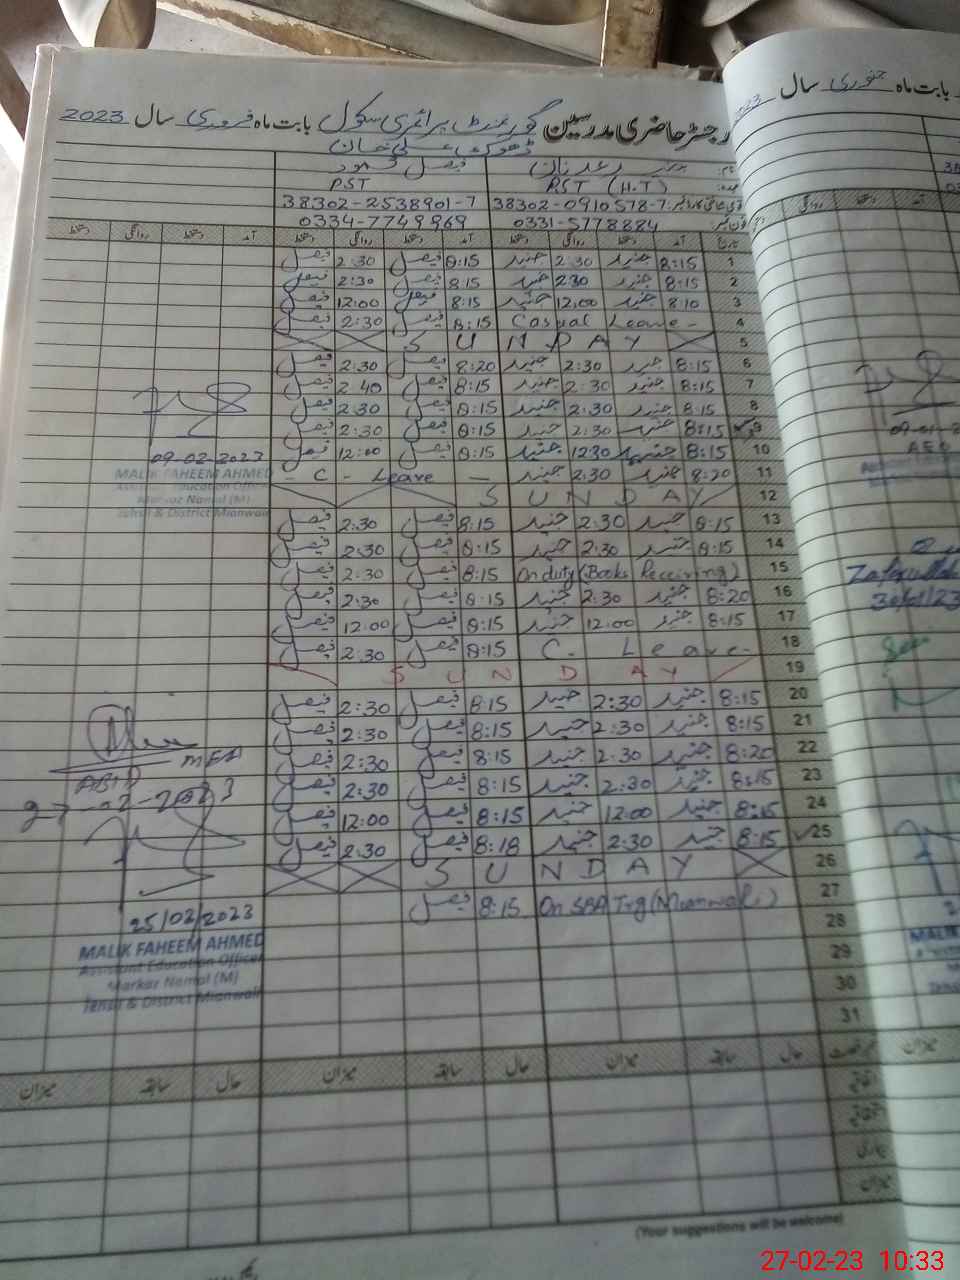 رجسٹر حاضری مدرسین گورنمنٹ پرائمری سکول بابت ماہ فروری سال 2023
ڈھوک علی خان
فیصل محمود
PST (H.T) PST
38302-0910578-7 38302-2538901-7
0331-5778884 0334-7749969
تاریخ آمد دستخط روانگی دستخط آمد دستخط روانگی دستخط آمد دستخط روانگی دستخط
1 8:15 جنید 2:30 جنید 8:15 فیصل 2:30 فیصل
2 8:15 جنید 2:30 جنید 8:15 فیصل 2:30 فیصل
3 8:10 جنید 12:00 جنید 8:15 فیصل 12:00 فیصل
4 Casual Leave- 8:15 فیصل 2:30 فیصل
5 SUNDAY
6 8:15 جنید 2:30 جنید 8:20 فیصل 2:30 فیصل
7 8:15 جنید 2:30 جنید 8:15 فیصل 2:40 فیصل
8 8:15 جنید 2:30 جنید 8:15 فیصل 2:30 فیصل
9 8:15 جنید 2:30 جنید 8:15 فیصل 2:30 فیصل
10 8:15 جنید 12:30 جنید 8:15 فیصل 12:00 فیصل
11 8:20 جنید 2:30 جنید - C - Leave -
12 SUNDAY
13 8:15 جنید 2:30 جنید 8:15 فیصل 2:30 فیصل
14 8:15 جنید 2:30 جنید 8:15 فیصل 2:30 فیصل
15 On duty (Books Receiving) 8:15 فیصل 2:30 فیصل
16 8:20 جنید 2:30 جنید 8:15 فیصل 2:30 فیصل
17 8:15 جنید 12:00 جنید 8:15 فیصل 12:00 فیصل
18 C. Leave- 8:15 فیصل 2:30 فیصل
19 SUNDAY
20 8:15 جنید 2:30 جنید 8:15 فیصل 2:30 فیصل
21 8:15 جنید 2:30 جنید 8:15 فیصل 2:30 فیصل
22 8:20 جنید 2:30 جنید 8:15 فیصل 2:30 فیصل
23 8:15 جنید 2:30 جنید 8:15 فیصل 2:30 فیصل
24 8:15 جنید 12:00 جنید 8:15 فیصل 12:00 فیصل
25 8:15 جنید 2:30 جنید 8:18 فیصل 2:30 فیصل
26 SUNDAY
27 On SBA Trg (Mianwali) 8:15 فیصل
28
29
30
31
حال سابقہ میزان حال سابقہ میزان حال سابقہ میزان
اتفاقیہ
بیماری
میزان
(Your suggestions will be welcome)
09-02-2023
MALIK FAHEEM AHMED
Assistant Education Officer
Markaz Namal (M)
Tehsil & District Mianwali
ABID MEA
27-02-2023
25/02/2023
MALIK FAHEEM AHMED
Assistant Education Officer
Markaz Namal (M)
Tehsil & District Mianwali
بابت ماہ جنوری سال 2023
روانگی دستخط آمد
AEO
Zafarullah
30/01/23
Seen
میزان
27-02-23 10:33